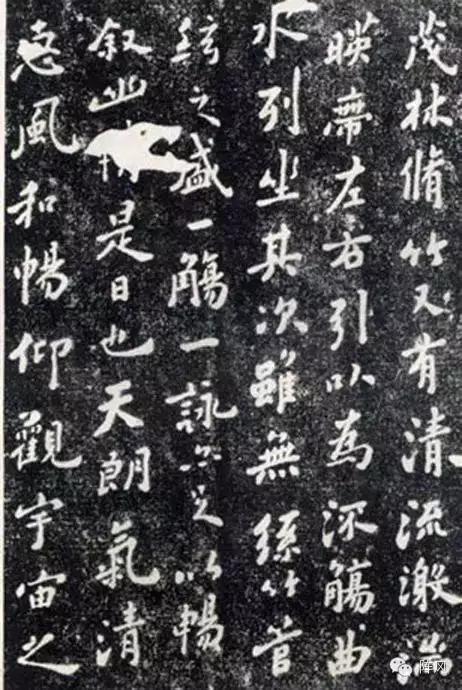 茂林脩竹又有清流激湍
暎帶左右引以為流觴曲
水列坐其次雖無絲竹管
絃之盛一觴一詠亦足以暢
叙幽是日也天朗氣清
惠風和暢仰觀宇宙之